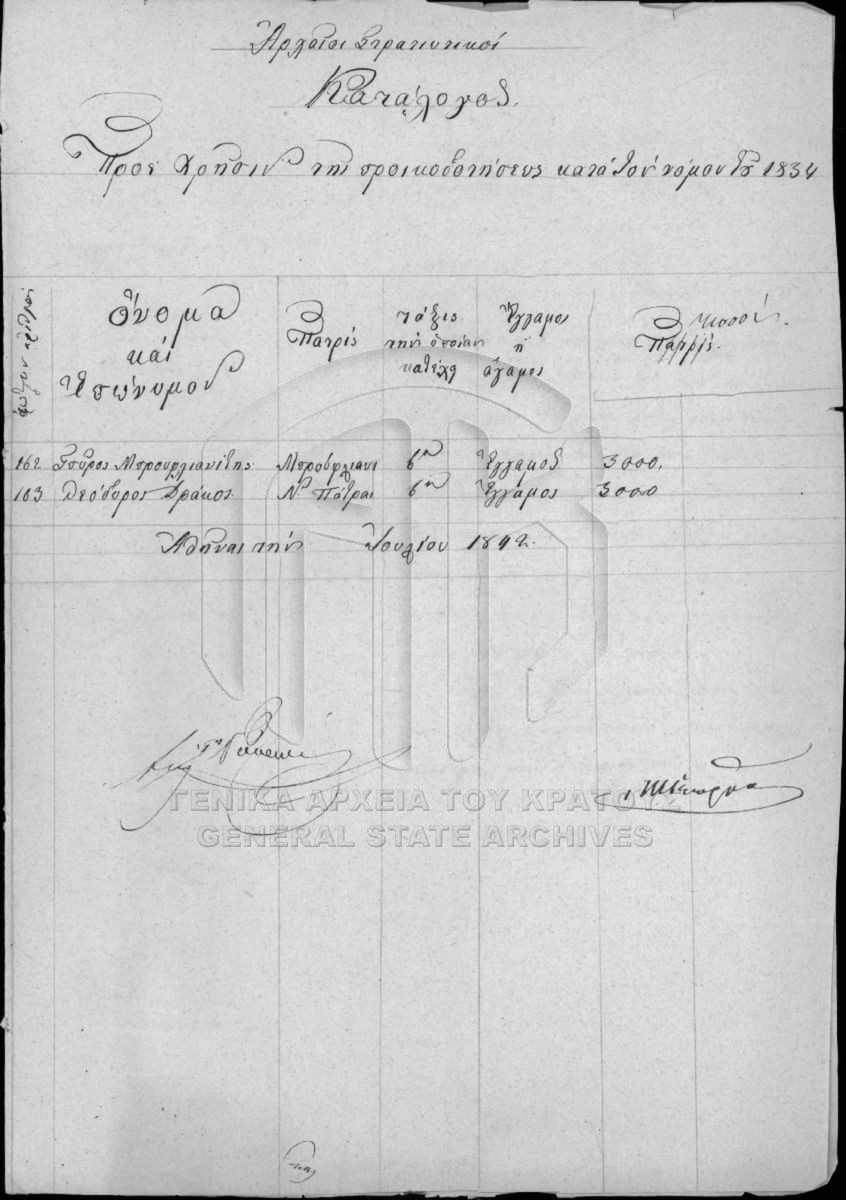 Ἀρχεῖοι Στρατιωτικοί
Κατάλογος.
Πρὸς χρῆσιν τῆς προικοδοτήσεως κατὰ τὸν νόμον τοῦ 1834
Ὄνομα καὶ Ἐπώνυμον
Πατρὶς
τάξις τὴν ὁποίαν κατέχη
Ἔγγαμος ἢ ἄγαμος
Ποσὸν
162 Σπῦρος Μπουρλιανίτης Μπούρλιανι 6η Ἔγγαμος 3000.
163 Θεόδωρος Δράκος. Ν. Πάτραι 6η Ἔγγαμος 3000
Ἀθῆναι τὴν Ἰουλίου 1842.
ΓΕΝΙΚΑ ΑΡΧΕΙΑ ΤΟΥ ΚΡΑΤΟΥΣ
GENERAL STATE ARCHIVES